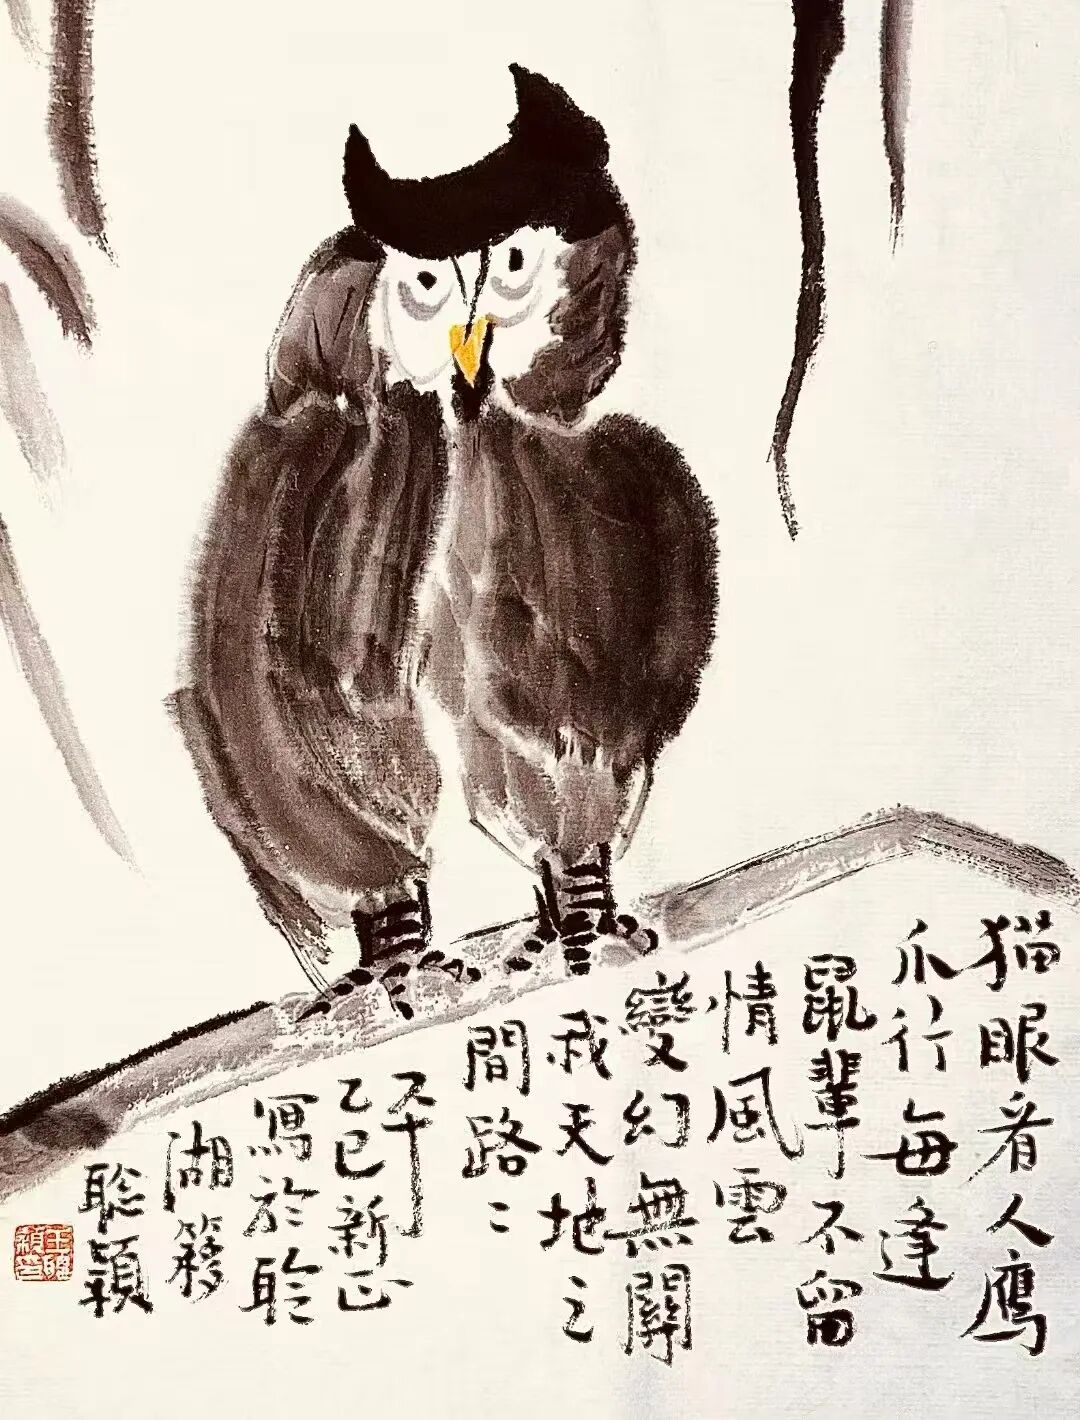 猫眼看人鹰
爪行每逢
鼠輩不留
情風雲
變幻無關
我天地之
間路〻
平
乙巳新正
寫於聆
湖簃
聪穎